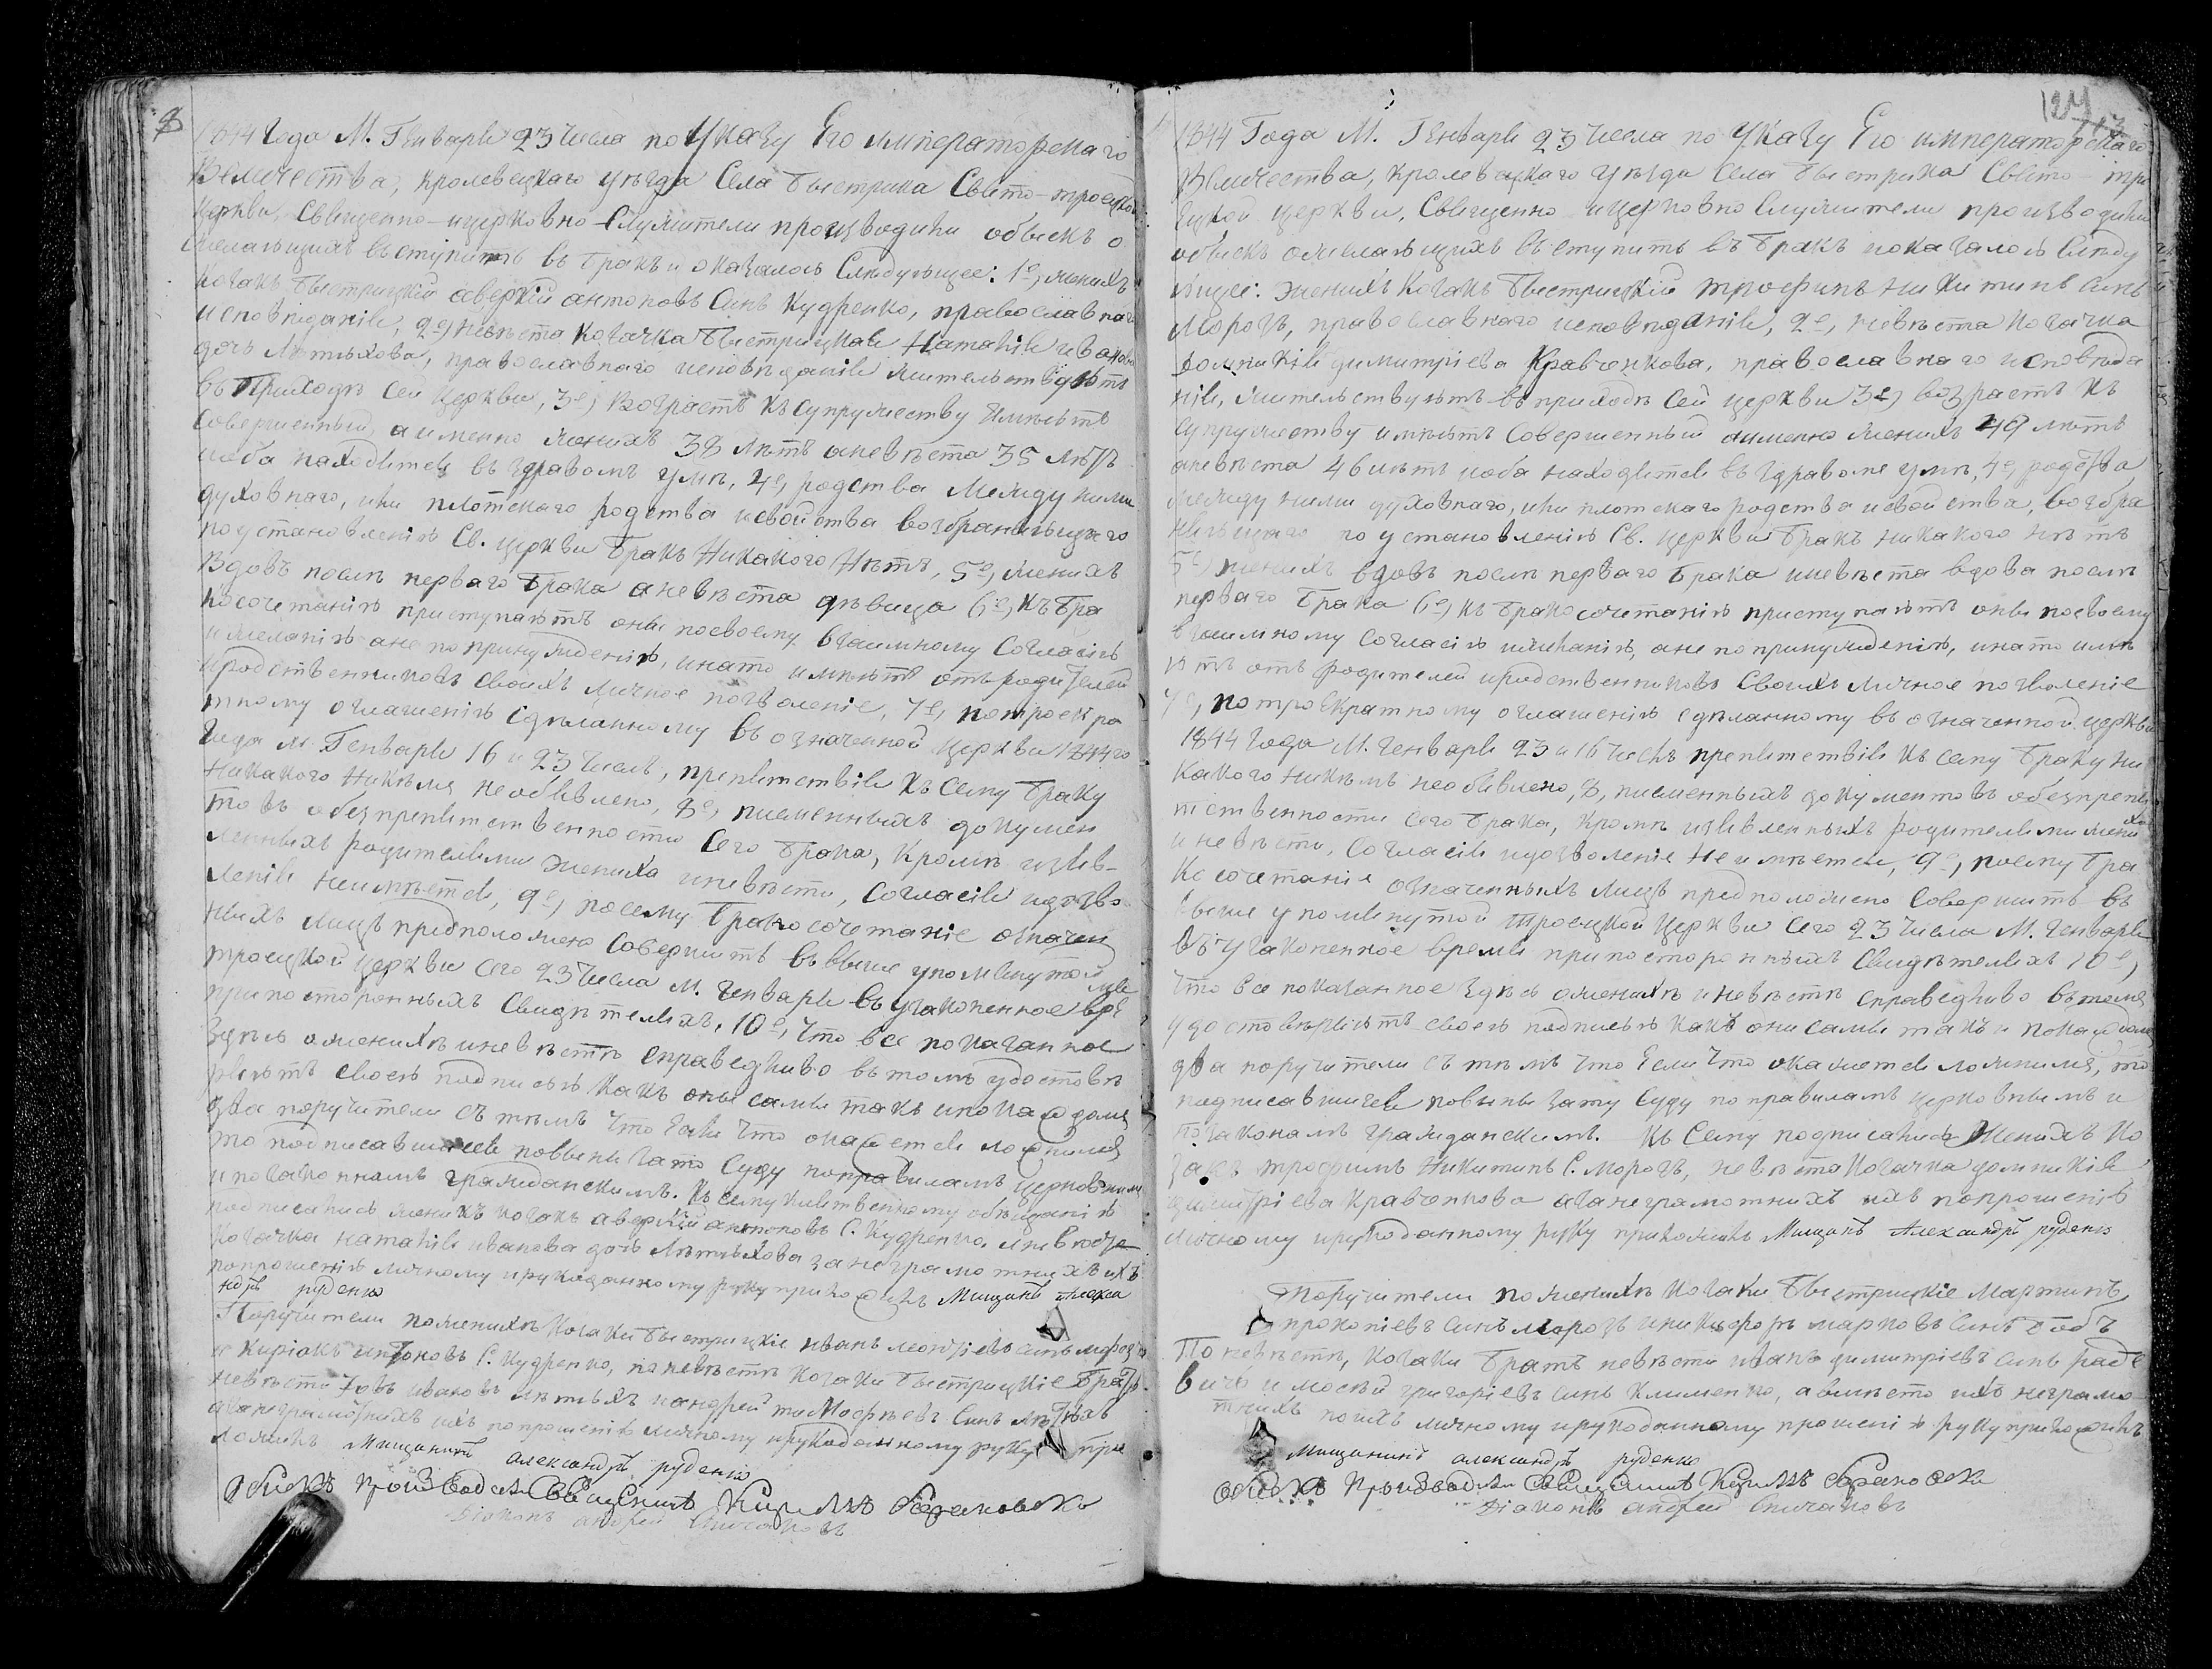 8
1844 Года М. Генваря 23 числа по Указу Его императорскаго
Величества, кролевецкаго уѣзда Села Быстрика Свято-троецкой
церкви, Священно-ицерковно-Служители производили обыскъ о
желающихъ вступить въ бракъ и оказалось Слѣдующее: 1е, женихъ
козакъ быстрицкій аверкій антоновъ Синъ Кудренко, православнаго
исповѣданія, 2е, невѣста Козачка быстрицкая Наталія иванова
дочь Лѣтяхова, православнаго исповѣданія жительствуютъ
въ Приходѣ Сей церкви, 3е, Возрастъ къ супружеству Имѣютъ
совершенный, а именно женихъ 38 лѣтъ аневѣста 35 лѣтъ
иоба находятся въ здравомъ умѣ, 4е, родства Между ними
духовнаго, или плотскаго родства исвойства возбраняющаго
поустановленію Св. церкви бракъ Никакого Нѣтъ, 5е, женихъ
Вдовъ послѣ перваго брака аневѣста дѣвица 6е, къ бра
косочетанію приступаютъ они посвоему взаимному Согласію
ижеланію анепопринужденію, инато имѣютъ отъродителей
иродственниковъ своихъ личное позволеніе, 7е, потроекра
тному оглашенію сдѣланному въ означенной церкви 1844го
Года м. Генваря 16 и 23 чиселъ, препятствія къ Сему браку
Никакого Никѣмъ необъявлено, 8е, писменныхъ докумен
товъ обезпрепятственности Сего брака, Кромѣ изъяв-
ленныхъ родителями жениха иневѣсти, согласія идозво
ленія неимѣется, 9е, посему бракосочетаніе означен
ныхъ лицъ предположено совершить въвыше упомянутой
троецкой церкви сего 23 числа м. генваря въузаконенное вре
припостороннихъ свидѣтеляхъ, 10е, что все показанное
Здѣсь оженихѣ иневѣстѣ справедливо въ томъ удостовѣ
ряютъ своею подписью какъ они сами такъ ипокаждомъ
два поручители съ тѣмъ что Если что окажется ложнимъ
то подписавшіеся повинни зато Суду поправиламъ церковнимъ
и позаконамъ гражданскимъ. Къ сему клятвенному обѣщанію
подписались женихъ козакъ аверкій антоновъ С. Кудренко,
Козачка наталія иванова дочь Лѣтяхова за неграмотнихъ ихъ
попрошенію личному ирукоданному руку приложилъ Мищанинъ Алекса
ндръ руденко
Поручители поженихѣ козаки быстрицкіе иванъ синъ морозъ
и Киріакъ антоновъ С. Кудренко, поневѣстѣ козаки быстрицкіе братъ
невѣсти ивановъ лѣтяхъ иандрей тимофѣевъ Синъ лѣтяхъ
азанеграмотнихъ ихъ попрошенію личному ирукоданному руку при
ложилъ Мищанинъ александръ руденко
обискъ производили Священникъ Кириллъ
Діаконъ андрей
1844 Года М. Генваря 23 числа по Указу Его императорскаго
Величества, кролевецкаго уѣзда Села быстрика Свято-тро
ецкой церкви, Священно-ицерковно Служители производили
обыскъ ожелающихъ въступить въ бракъ ионазалось слѣду
ющее: женихъ Козакъ быстрицкій трофимъ никитинъ синъ
Морозъ, православнаго исповѣданія, 2е, невѣста козачка
домникія димитріева Кравченкова, православнаго исповѣда
нія, жительствуютъ въ приходѣ сей церкви 3е, возрастъ къ
супружеству имѣютъ совершенный аименно женихъ 49 лѣтъ
аневѣста 46 лѣтъ иоба находятся въ здравомъ умѣ, 4е, родства
между ними духовнаго, или плотскаго родства исвойства, возбра
няющаго поустановленію Св. церкви бракъ никакого нѣтъ
5е, женихъ вдовъ послѣ перваго брака иневѣста вдова послѣ
перваго брака 6е, къ бракосочетанію приступаютъ они посвоему
взаимному согласію ижеланію, ане попринужденію, инато имѣ
ютъ отъ родителей иродственниковъ своихъ личное позволеніе
7е, потроекратному оглашенію сдѣланному въ означенной церкви
1844 года М. генваря 23 и 16 чиселъ препятствія къ сему браку ни
какого никѣмъ необъявлено, 8, писменныхъ документовъ обезпрепя
тственности сего брака, кромѣ изъявленныхъ родителями жениха
и невѣсти, согласія идозволеніе Неимѣется, 9е, посему бра
косочетаніе означенныхъ лицъ предположено совершить въ
выше упомянутой троецкой церкви сего 23 числа М. генваря
въ узаконенное время припостороннихъ свидѣтеляхъ 10е,
что все показанное здѣсь оженихѣ иневѣстѣ справедливо въ томъ
удостовѣряютъ своею подписью какъ они сами такъ и покаждомъ
два поручители съ тѣмъ что Если что окажется ложнимъ, то
подписавшіеся повинни зато суду поправиламъ церковнимъ и
позаконамъ гражданскимъ. Къ Сему подписались Женихъ Ко
закъ трофимъ никитинъ С. Морозъ, невѣста Козачка домникія
димитріева Кравченкова азанеграмотнихъ ихъ попрошенію
личному ирукоданному руку приложилъ Мищанинъ Александръ руденко
Поручители поженихѣ козаки быстрицкіе Мартинъ
прокопіевъ синъ морозъ иникифоръ марковъ синъ
По невѣстѣ, козаки братъ невѣсти иванъ димитріевъ синъ
и мосѣй григоріевъ синъ Клименко, авмѣсто ихъ неграмо
тнихъ поихъ личному ирукоданному прошенію руку приложилъ
Мищанинъ александръ руденко
обискъ Производили Священникъ Кириллъ
Діаконъ андрей